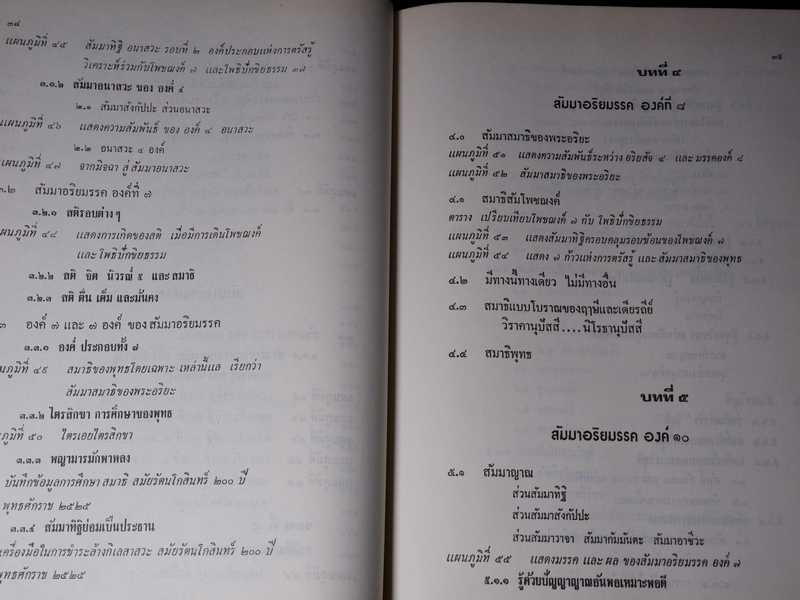 ๓๘
แผนภูมิที่ ๔๕ สัมมาทิฐิ อนาสวะ รอบที่ ๒ องค์ประกอบแห่งการตรัสรู้
วิเคราะห์ร่วมกับโพชฌงค์ ๗ และโพธิปักขิยธรรม ๓๗
๓.๑.๒ สัมมาอนาสวะ ของ องค์ ๔
๒.๑ สัมมาสังกัปปะ ส่วนอนาสวะ
แผนภูมิที่ ๔๖ แสดงความสัมพันธ์ ของ องค์ ๔ อนาสวะ
๒.๒ อนาสวะ ๔ องค์
แผนภูมิที่ ๔๗ จากมิจฉา สู่ สัมมาอนาสวะ
๓.๒ สัมมาอริยมรรค องค์ที่ ๗
๓.๒.๑ สติรอบต่างๆ
แผนภูมิที่ ๔๘ แสดงการเกิดของสติ เมื่อมีการเดินโพชฌงค์
และโพธิปักขิยธรรม
๓.๒.๒ สติ จิต นิวรณ์ ๕ และสมาธิ
๓.๒.๓ สติ ตื่น เต็ม และมั่นคง
๓ องค์ ๗ และ ๗ องค์ ของสัมมาอริยมรรค
๓.๓.๑ องค์ ประกอบทั้ง ๗
นภูมิที่ ๔๙ สมาธิของพุทธโดยเฉพาะ เหล่านี้แล เรียกว่า
สัมมาสมาธิของพระอริยะ
๓.๓.๒ ไตรสิกขา การศึกษาของพุทธ
ภูมิที่ ๕๐ ไตรเอยไตรสิกขา
๓.๓.๓ พญามารมักพาหลง
บันทึกข้อมูลการศึกษา สมาธิ สมัยรัตนโกสินทร์ ๒๐๐ ปี
พุทธศักราช ๒๕๒๕
๓.๓.๔ สัมมาทิฐิย่อมเป็นประธาน
เครื่องมือในการชำระล้างกิเลสาสวะ สมัยรัตนโกสินทร์ ๒๐๐ ปี
พุทธศักราช ๒๕๒๕
๓๙
บทที่ ๔
สัมมาอริยมรรค องค์ที่ ๘
๔.๐ สัมมาสมาธิของพระอริยะ
แผนภูมิที่ ๕๑ แสดงความสัมพันธ์ระหว่าง อริยสัจ ๔ และ มรรคองค์ ๘
แผนภูมิที่ ๕๒ สัมมาสมาธิของพระอริยะ
๔.๑ สมาธิสัมโพชฌงค์
ตาราง เปรียบเทียบโพชฌงค์ ๗ กับ โพธิปักขิยธรรม
แผนภูมิที่ ๕๓ แสดงสัมมาทิฐิครอบคลุมรอบข้อมของโพชฌงค์ ๗
แผนภูมิที่ ๕๔ แสดง ๗ ก้าวแห่งการตรัสรู้ และ สัมมาสมาธิของพุทธ
๔.๒ มีทางนี้ทางเดียว ไม่มีทางอื่น
๔.๓ สมาธิแบบโบราณของฤๅษีและเดียรถีย์
วิราคานุปัสสี....นิโรธานุปัสสี
๔.๔ สมาธิพุทธ
บทที่ ๕
สัมมาอริยมรรค องค์ ๑๐
๕.๑ สัมมาญาณ
ส่วนสัมมาทิฐิ
ส่วนสัมมาสังกัปปะ
ส่วนสัมมาวาจา สัมมากัมมันตะ สัมมาอาชีวะ
แผนภูมิที่ ๕๕ แสดงมรรค และ ผล ของสัมมาอริยมรรค องค์ ๗
๕.๑.๑ รู้ด้วยปัญญาญาณอันพอเหมาะพอดี